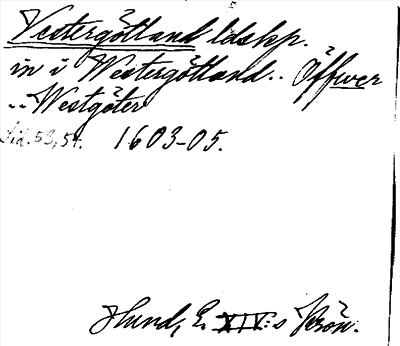 Vestergötland ldskp.
in i Westergötland.. Öffwer
.. Westgöter
Sid. 53, 54. 1603-05.
Hund, E. XIV:s Krön.